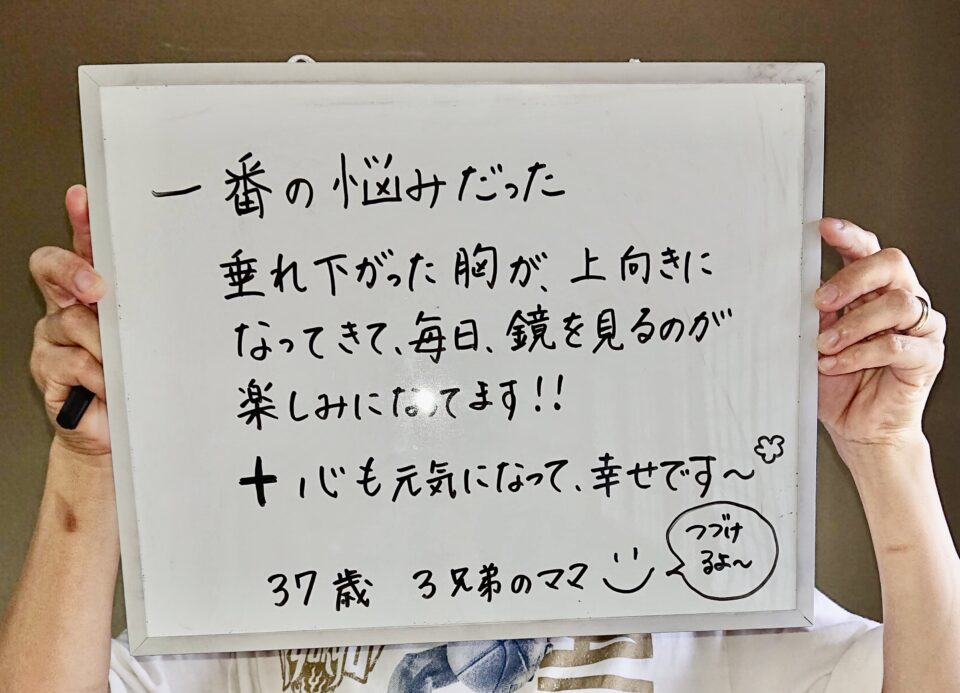 一番の悩みだった
垂れ下がった胸が、上向きに
なってきて、毎日、鏡を見るのが
楽しみになってます!!
+心も元気になって、幸せです〜
37歳 3兄弟のママ
つづけ
るよ〜